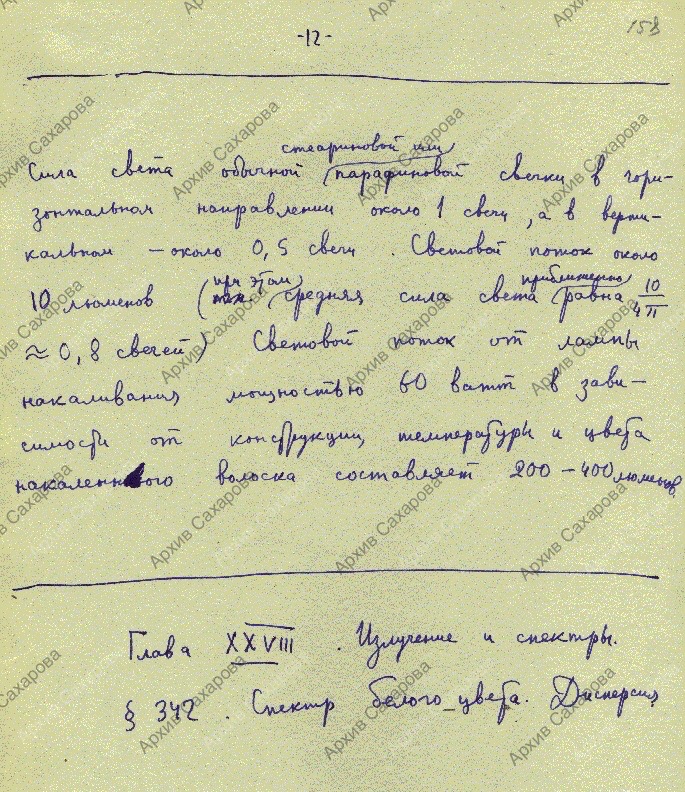 -12-
158
стеариновой или
Сила света обычной парафиновой свечки в гори-
зонтальном направлении около 1 свечи, а в верти-
кальном — около 0,5 свечи. Световой поток около
при этом приблизительно
10 люменов ( средняя сила света равна 10/4π
≈ 0,8 свечей) Световой поток от лампы
накаливания мощностью 60 ватт в зави-
симости от конструкции, температуры и цвета
накаленного волоска составляет 200 – 400 люменов.
Глава XXVIII. Излучение и спектры.
§ 342. Спектр белого цвета. Дисперсия
Архив Сахарова